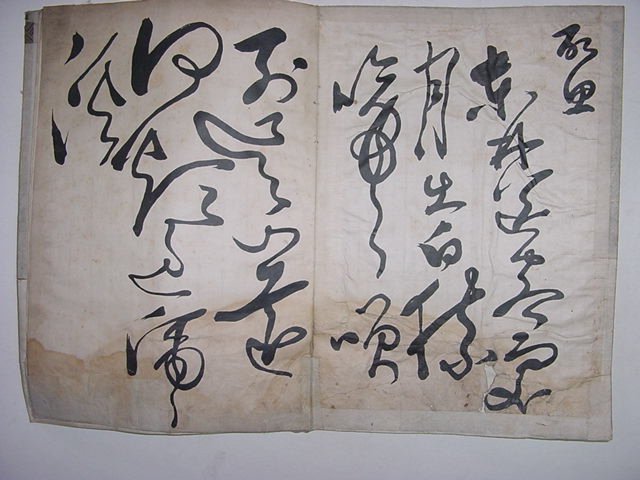 東林送客處
月出白猿
啼咲
別廬山遠
何煩過虎
溪